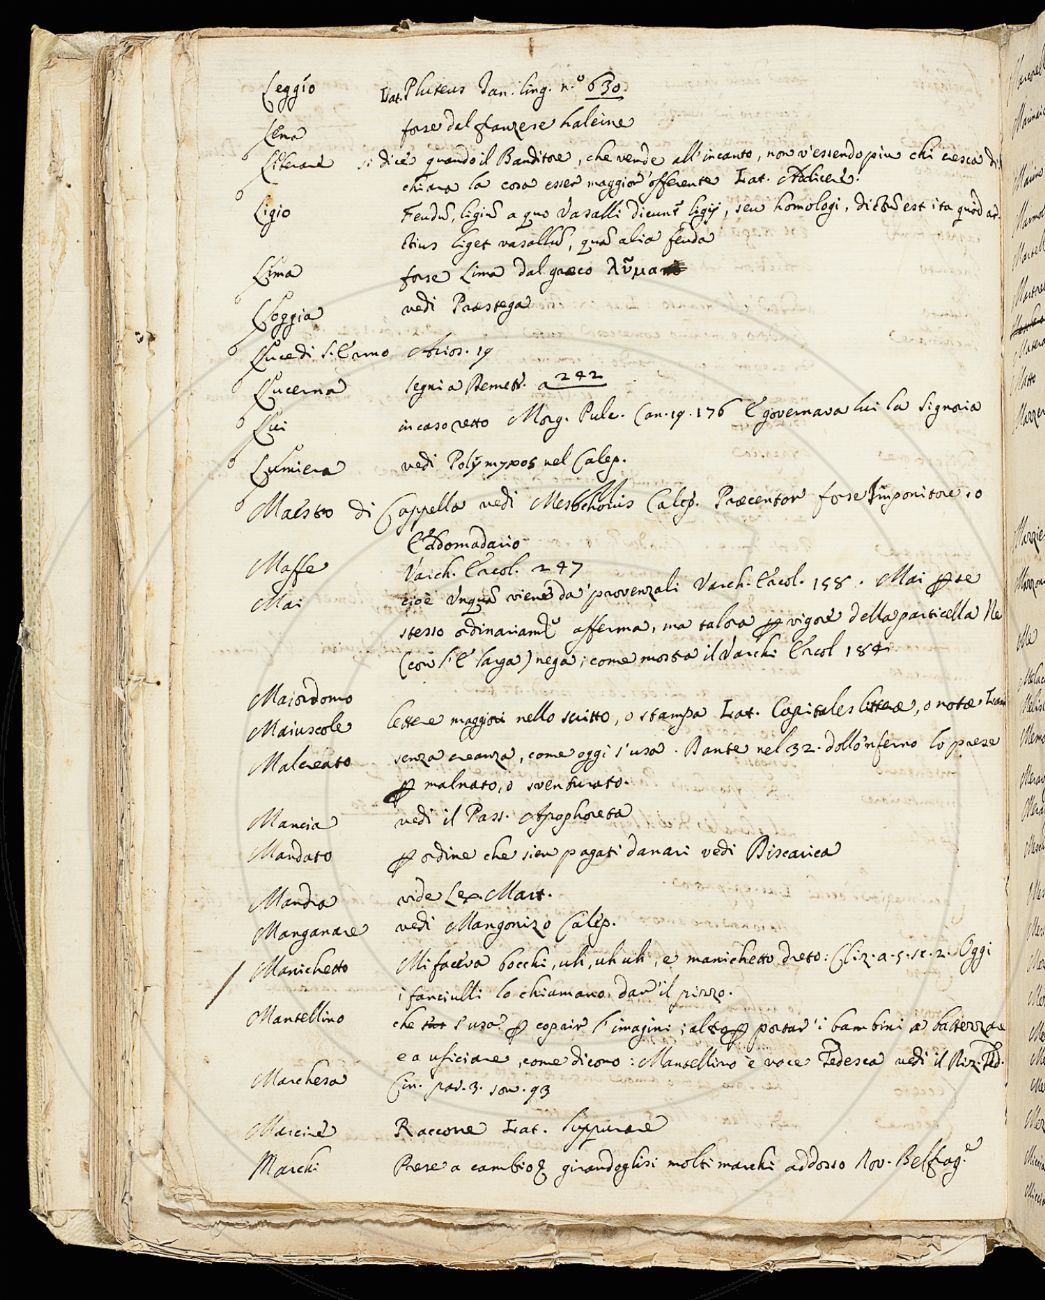 Leggio Lat. Pluteus Ian. ling. n.º 630.
Lena forse dal franzese haleine
Liberare si dice quando il Banditore, che vende all'incanto, non v'essendo più chi cresca di-
chiara la cosa esser maggior'offerente Lat. Addicere.
Ligio Feudũ, ligiũ a quo Vasalli dicunt.r ligij, seu homologi, est ita quòd
ligetius liget vasallũ, quã alia feuda
Lima forse Lima dal graeco λῦμα
Loggia vedi Praestega
Luce di S. Ermo Arios. 19
Lucerna segni a Demetr. a 242
Lui in caso retto Morg. Pulc. Can. 19. 176 E governava lui la Signoria
Lumiera vedi Polymyxos nel Calep.
Maestro di Cappella vedi Mesochorus Calep. Praecentor forse Imponitore, o
Edomadario
Maffe Varch. Ercol. 247
Mai cioè Unquã viene da' provenzali Varch. Ercol. 158. Mai per se
stesso ordinariam.te afferma, ma talora per vigore della particella Ne
(con l'E larga) nega; come mostra il Varchi Ercol 184
Maiordomo
Maiuscole lettere maggiori nello scritto, o stampa Lat. Capitales litterae, o notae
Malcreato senza creanza, come oggi s'usa. Dante nel 32. dello 'nferno lo prese
per malnato, o sventurato.
Mancia vedi il Pass. Apophoreta
Mandato per ordine che sien pagati danari vedi Biscarica
Mandra vide Lex. Mart.
Manganare vedi Mangonizo Calep.
Manichetto Mi faceva bocchi, uh, uh uh, e manichetto dreto: Cliz. a. 5. sc. 2. Oggi
i fanciulli lo chiamano, dar'il pizzo.
Mantellino che s'usa per coprir l'imagini; altro per portar'i bambini a battezzare
e a uficiare, come dicono: Mantellino è voce Tedesca vedi il Diz. Ted.
Marchesa Cin. par. 3. son. 93
Marcire Raccorre Lat. Suppurare
Marchi Prese a cambio, e girandoglisi molti marchi addosso Nov. Belfag.e